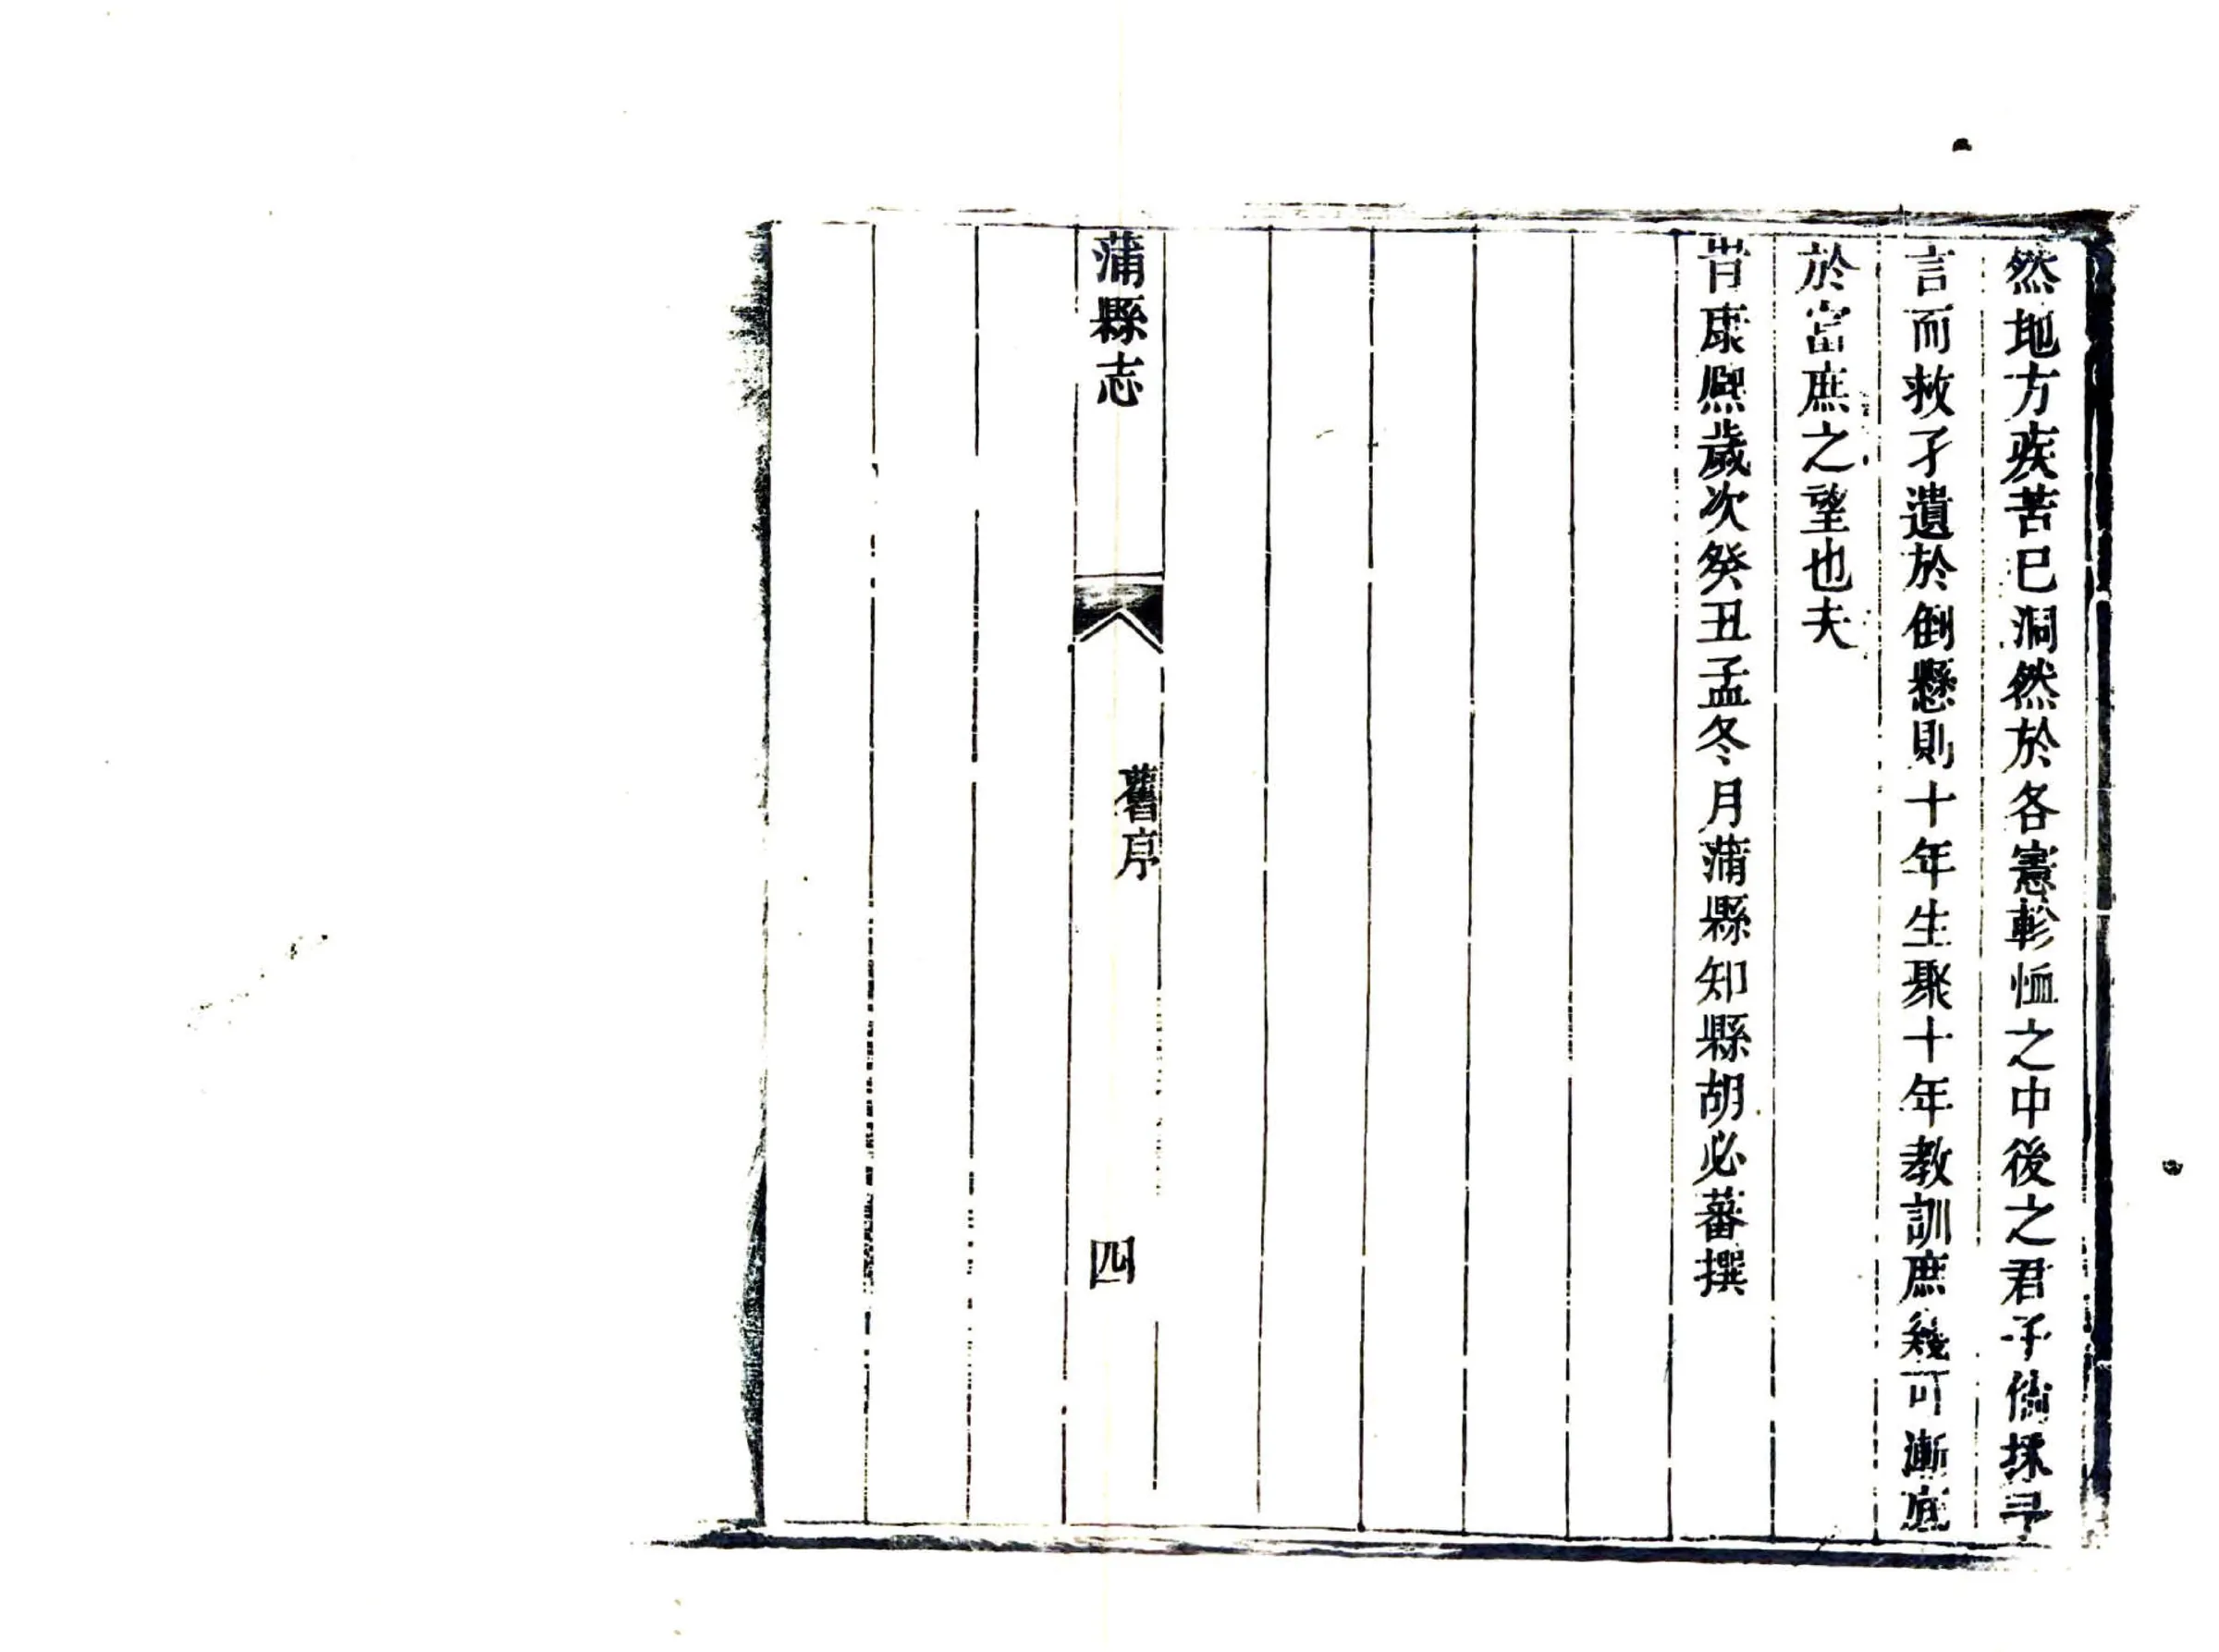 然地方疾苦已洞然於各憲軫恤之中後之君子倘採予
言而救孑遺於倒懸則十年生聚十年教訓庶幾可漸底
於富庶之望也夫
旹康熙歲次癸丑孟冬月蒲縣知縣胡必蕃撰
蒲縣志
舊序
四